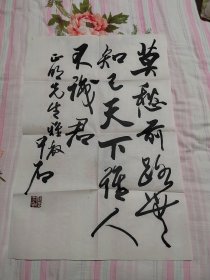 莫愁前路无
知己天下谁人
不识君
正明先生雅教
中石